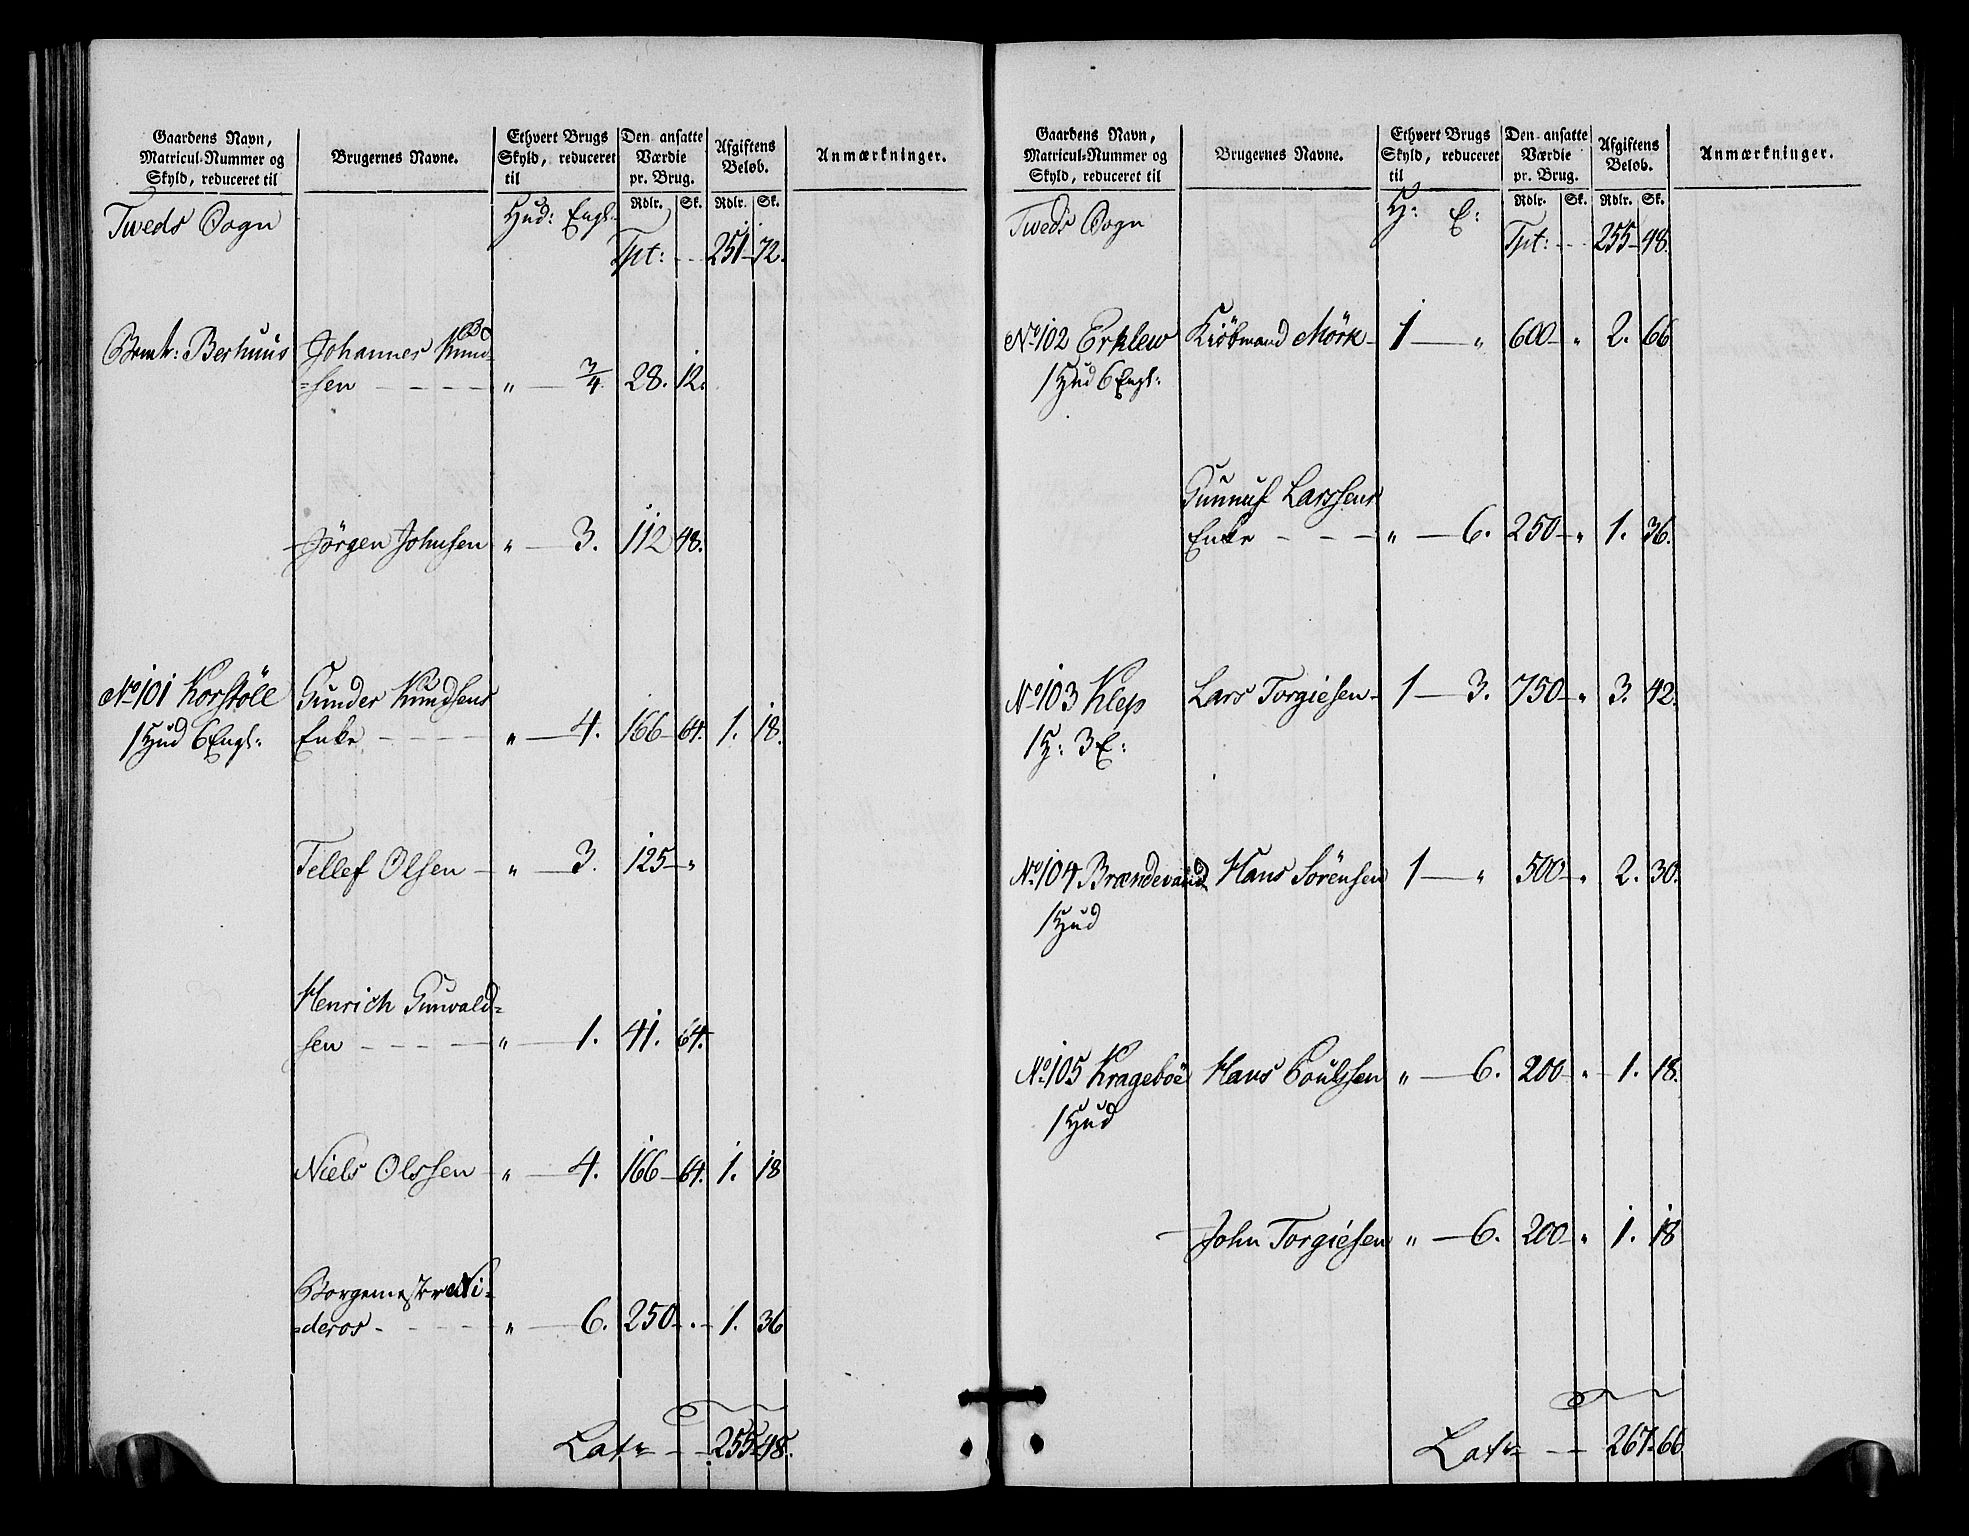 Gaardens Navn,
Matricul-Nummer og
Skyld, reduceret til
Brugernes Navne.
Ethvert Brugs
Skyld, reduceret
til
Den ansatte
Værdie
pr. Brug.
Afgiftens
Beløb.
Anmærkninger.
Rdlr. Sk. Rdlr. Sk.
Tweds Sogn Hud: Engl:
Tpt: 251 72.
Johannes Knud
=sen " 3/4 28. 12.
Jörgen Johnsen " 3. 112 48.
No 101 Korstöll Gunder Knudsens
1 Hud 6 Engl: Enke " 4. 166 64. 1. 18.
Tellef Olsen " 3. 125 "
Henrich Gunvald=
sen " 1. 41. 64.
Niels Olssen " 4. 166 64. 1. 18
Borgemester Ni=
=deros " 6. 250 . 1. 36
Latr 255 48.
Gaardens Navn,
Matricul-Nummer og
Skyld, reduceret til
Brugernes Navne.
Ethvert Brugs
Skyld, reduceret
til
Den ansatte
Værdie
pr. Brug.
Afgiftens
Beløb.
Anmærkninger.
Rdlr. Sk. Rdlr. Sk.
Tweds Sogn H: E:
Tpt: 255 48.
No 102 Erklew Kiöbmand Mörk 1 " 600 " 2. 66
1 Hud 6 Engl:
Gunnuf Larssens
Enke " 6. 250 " 1. 36.
No 103 Klep Lars Torgiesen 1 3. 750 " 3. 42.
1 H: 3 E:
No 104 Brændevand Hans Sörensen 1 " 500 " 2. 30.
1 Hud
No 105 Krageböe Hans Poulssen " 6. 200 " 1. 18.
1 Hud
John Torgiesen " 6. 200 " 1. 18
Latr 267 66